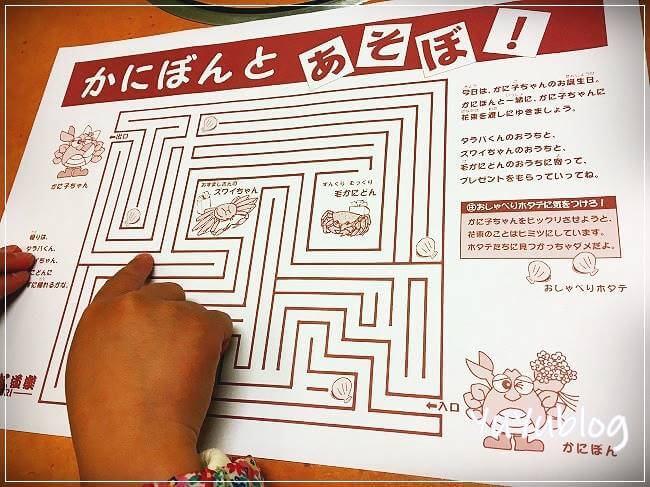 かにぼんと あそぼ！
今日は、かに子ちゃんのお誕生日。
かにぼんと一緒に、かに子ちゃんに
花束を渡しにゆきましょう。
タラバくんのおうちと、
ズワイちゃんのおうちと、
毛がにどんのおうちに寄って、
プレゼントをもらっていってね。
おしゃべりホタテに気をつけろ！
かに子ちゃんをビックリさせようと、
花束のことはヒミツにしています。
ホタテたちに見つかっちゃダメだよ。
おしゃべりホタテ
←出口
かに子ちゃん
おすましさんの
ズワイちゃん
ずんぐり むっくり
毛がにどん
帰りは、
タラバくん、
イちゃん、
にどんに
ずに帰れるかな。
←入口
かにぼん
YuYublog